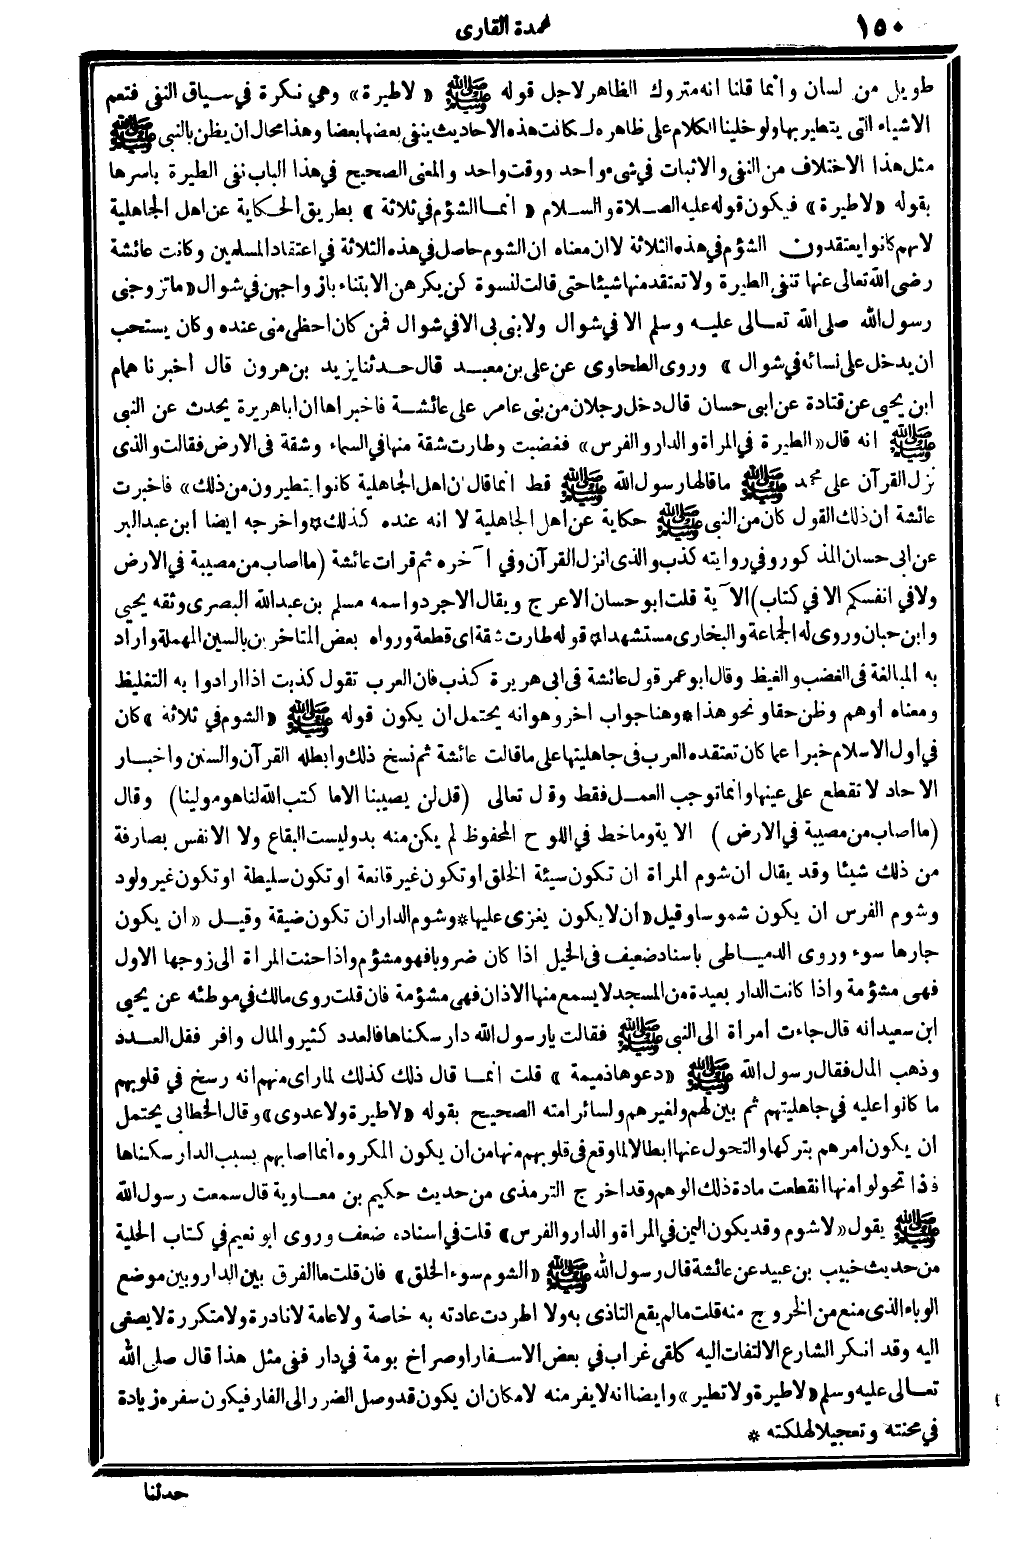 ١٥٠
عمدة القارى
طويل من لسان وانما قلنا انه متروك الظاهر لاجل قوله ﷺ « لاطيرة » وهي نكرة في سياق النفى فتعم
الاشياء التى يتطير بها ولو خلينا الكلام على ظاهره لـكانت هذه الاحاديث ينفى بعضها بعضا وهذا محال ان يظن بالنبى ﷺ
مثل هذا الاختلاف من النفى والاثبات في شىء واحد ووقت واحد والمعنى الصحيح في هذا الباب نفى الطيرة باسرها
بقوله « لاطيرة » فيكون قوله عليه الصلاة والسلام « انما الشؤم في ثلاثة » بطريق الحكاية عن اهل الجاهلية
لانهم كانوا يعتقدون الشؤم في هذه الثلاثة لا ان معناه ان الشوم حاصل في هذه الثلاثة في اعتقاد المسلمين وكانت عائشة
رضى الله تعالى عنها تنفى الطيرة ولا تعتقد منها شيئا حتى قالت لنسوة كن يكرهن الابتناء بازواجهن في شوال « ما تزوجنى
رسول الله صلى الله تعالى عليه وسلم الا في شوال ولا بنى بى الا في شوال فمن كان احظى منى عنده وكان يستحب
ان يدخل على نسائه في شوال » وروى الطحاوى عن على بن معبد قال حدثنا يزيد بن هرون قال أخبرنا همام
ابن يحيى عن قتادة عن ابى حسان قال دخل رجلان من بنى عامر على عائشة فاخبراها ان ابا هريرة يحدث عن النبى
ﷺ انه قال « الطيرة في المرأة والدار والفرس » فغضبت وطارت شقة منها في السماء وشقة فى الارض فقالت والذى
نزل القرآن على محمد ﷺ ما قالها رسول الله ﷺ قط انما قال ان اهل الجاهلية كانوا يتطيرون من ذلك » فاخبرت
عائشة ان ذلك القول كان من النبى ﷺ حكاية عن اهل الجاهلية لا انه عنده كذلك * واخرجه ايضا ابن عبد البر
عن ابى حسان المذكور وفي روايته كذب والذى انزل القرآن وفي آخره ثم قرات عائشة ( ما اصاب من مصيبة في الارض
ولا في انفسكم الا في كتاب ) الآية قلت ابو حسان الاعرج ويقال الاجرد واسمه مسلم بن عبد الله البصرى وثقه يحيى
وابن حبان وروى له الجماعة والبخارى مستشهدا * قوله طارت شقة اى قطعة ورواه بعض المتاخرين بالسين المهملة واراد
به المبالغة فى الغضب والغيظ وقال ابو عمر قول عائشة فى ابى هريرة كذب فان العرب تقول كذبت اذا ارادوا به التغليظ
ومعناه اوهم وظن حقا ونحو هذا * وهنا جواب آخر وهو انه يحتمل ان يكون قوله ﷺ « الشوم في ثلاثة » كان
في اول الاسلام خبرا عما كان تعتقده العرب في جاهليتها على ما قالت عائشة ثم نسخ ذلك وابطله القرآن والسنن واخبار
الاحاد لا تقطع على عينها وانما توجب العمل فقط وقال تعالى ( قل لن يصيبنا الا ما كتب الله لنا هو مولينا ) وقال
( ما اصاب من مصيبة في الارض ) الاية وما خط في اللوح المحفوظ لم يكن منه بد وليست البقاع ولا الانفس بصارفة
من ذلك شيئا وقد يقال ان شوم المرأة ان تكون سيئة الخلق او تكون غير قانعة او تكون سليطة او تكون غير ولود
وشوم الفرس ان يكون شموسا وقيل « ان لا يكون يغزى عليها * وشوم الدار ان تكون ضيقة وقيل « ان يكون
جارها سوء وروى الدمياطى باسناد ضعيف فى الخيل اذا كان ضروبا فهو مشؤم واذا حنت المرأة الى زوجها الاول
فهى مشؤمة واذا كانت الدار بعيدة من المسجد لا يسمع منها الاذان فهى مشؤمة فان قلت روى مالك في موطئه عن يحيى
ابن سعيد انه قال جاءت امرأة الى النبى ﷺ فقالت يا رسول الله دار سكناها فالعدد كثير والمال وافر فقل العدد
وذهب المال فقال رسول الله ﷺ « دعوها ذميمة » قلت انما قال ذلك كذلك لما رأى منهم انه رسخ في قلوبهم
ما كانوا عليه في جاهليتهم ثم بين لهم ولغيرهم ولسائر امته الصحيح بقوله « لاطيرة ولا عدوى » وقال الخطابى يحتمل
ان يكون امرهم بتركها والتحول عنها ابطالا لما وقع فى قلوبهم منها من ان يكون المكروه انما اصابهم بسبب الدار سكناها
فاذا تحولوا منها انقطعت مادة ذلك الوهم وقد اخرج الترمذى من حديث حكيم بن معاوية قال سمعت رسول الله
ﷺ يقول « لا شوم وقد يكون اليمن في المرأة والدار والفرس » قلت في اسناده ضعف وروى ابو نعيم في كتاب الحلية
من حديث خبيب بن عبيد عن عائشة قال رسول الله ﷺ « الشوم سوء الخلق » فان قلت ما الفرق بين الدار وبين موضع
الوباء الذى منع من الخروج منه قلت ما لم يقع التاذى به ولا اطردت عادته به خاصة ولا عامة لا نادرة ولا متكررة لا يصغى
اليه وقد انكر الشارع الالتفات اليه كلقى غراب في بعض الاسفار او صراخ بومة في دار ففى مثل هذا قال صلى الله
تعالى عليه وسلم « لاطيرة ولا تطير » وايضا انه لا يفر منه لامكان ان يكون قد وصل الضرر الى الفار فيكون سفره زيادة
في محنته وتعجيلا لهلكته *
حدثنا